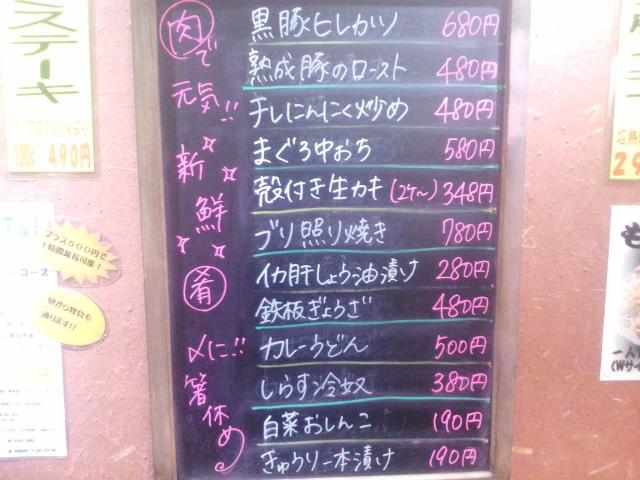 肉で元気!!
新鮮肴
〆に!!箸休め
黒豚ヒレカツ 680円
熟成豚のロースト 480円
チレにんにく炒め 480円
まぐろ中おち 580円
殻付き生カキ(2ケ〜) 348円
ブリ照り焼き 780円
イカ肝しょう油漬け 280円
鉄板ぎょうざ 480円
カレーうどん 500円
しらす冷奴 380円
白菜おしんこ 190円
きゅうり一本漬け 190円
ステーキ
100g 490円
プラス500円で
1時間延長可能!
コース
承ります!!